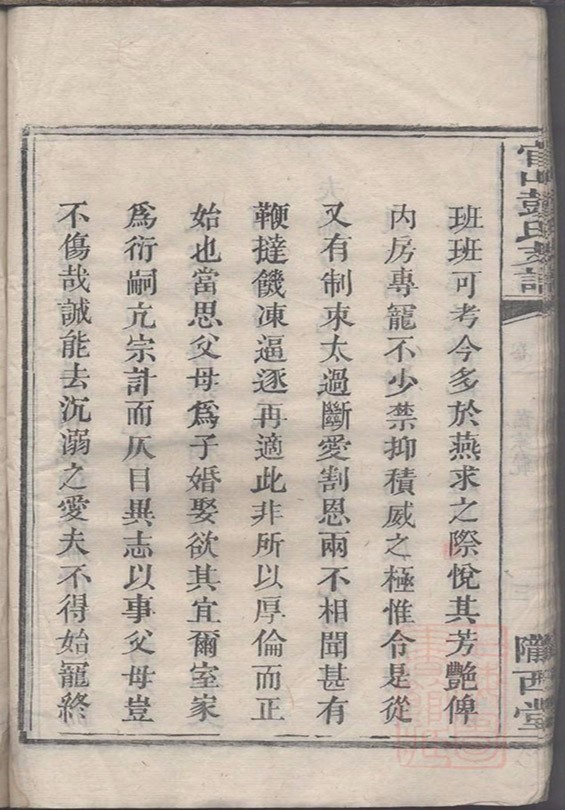 官山彭氏支譜
卷一
隴西堂
班班可考今多於燕求之際悅其芳艷俾
內房專寵不少禁抑積威之極惟令是從
又有制束太過斷愛割恩兩不相聞甚有
鞭撻饑凍逼逐再適此非所以厚倫而正
始也當思父母爲子婚娶欲其宜爾室家
爲衍嗣亢宗計而仄目異志以事父母豈
不傷哉誠能去沉溺之愛夫不得始寵終